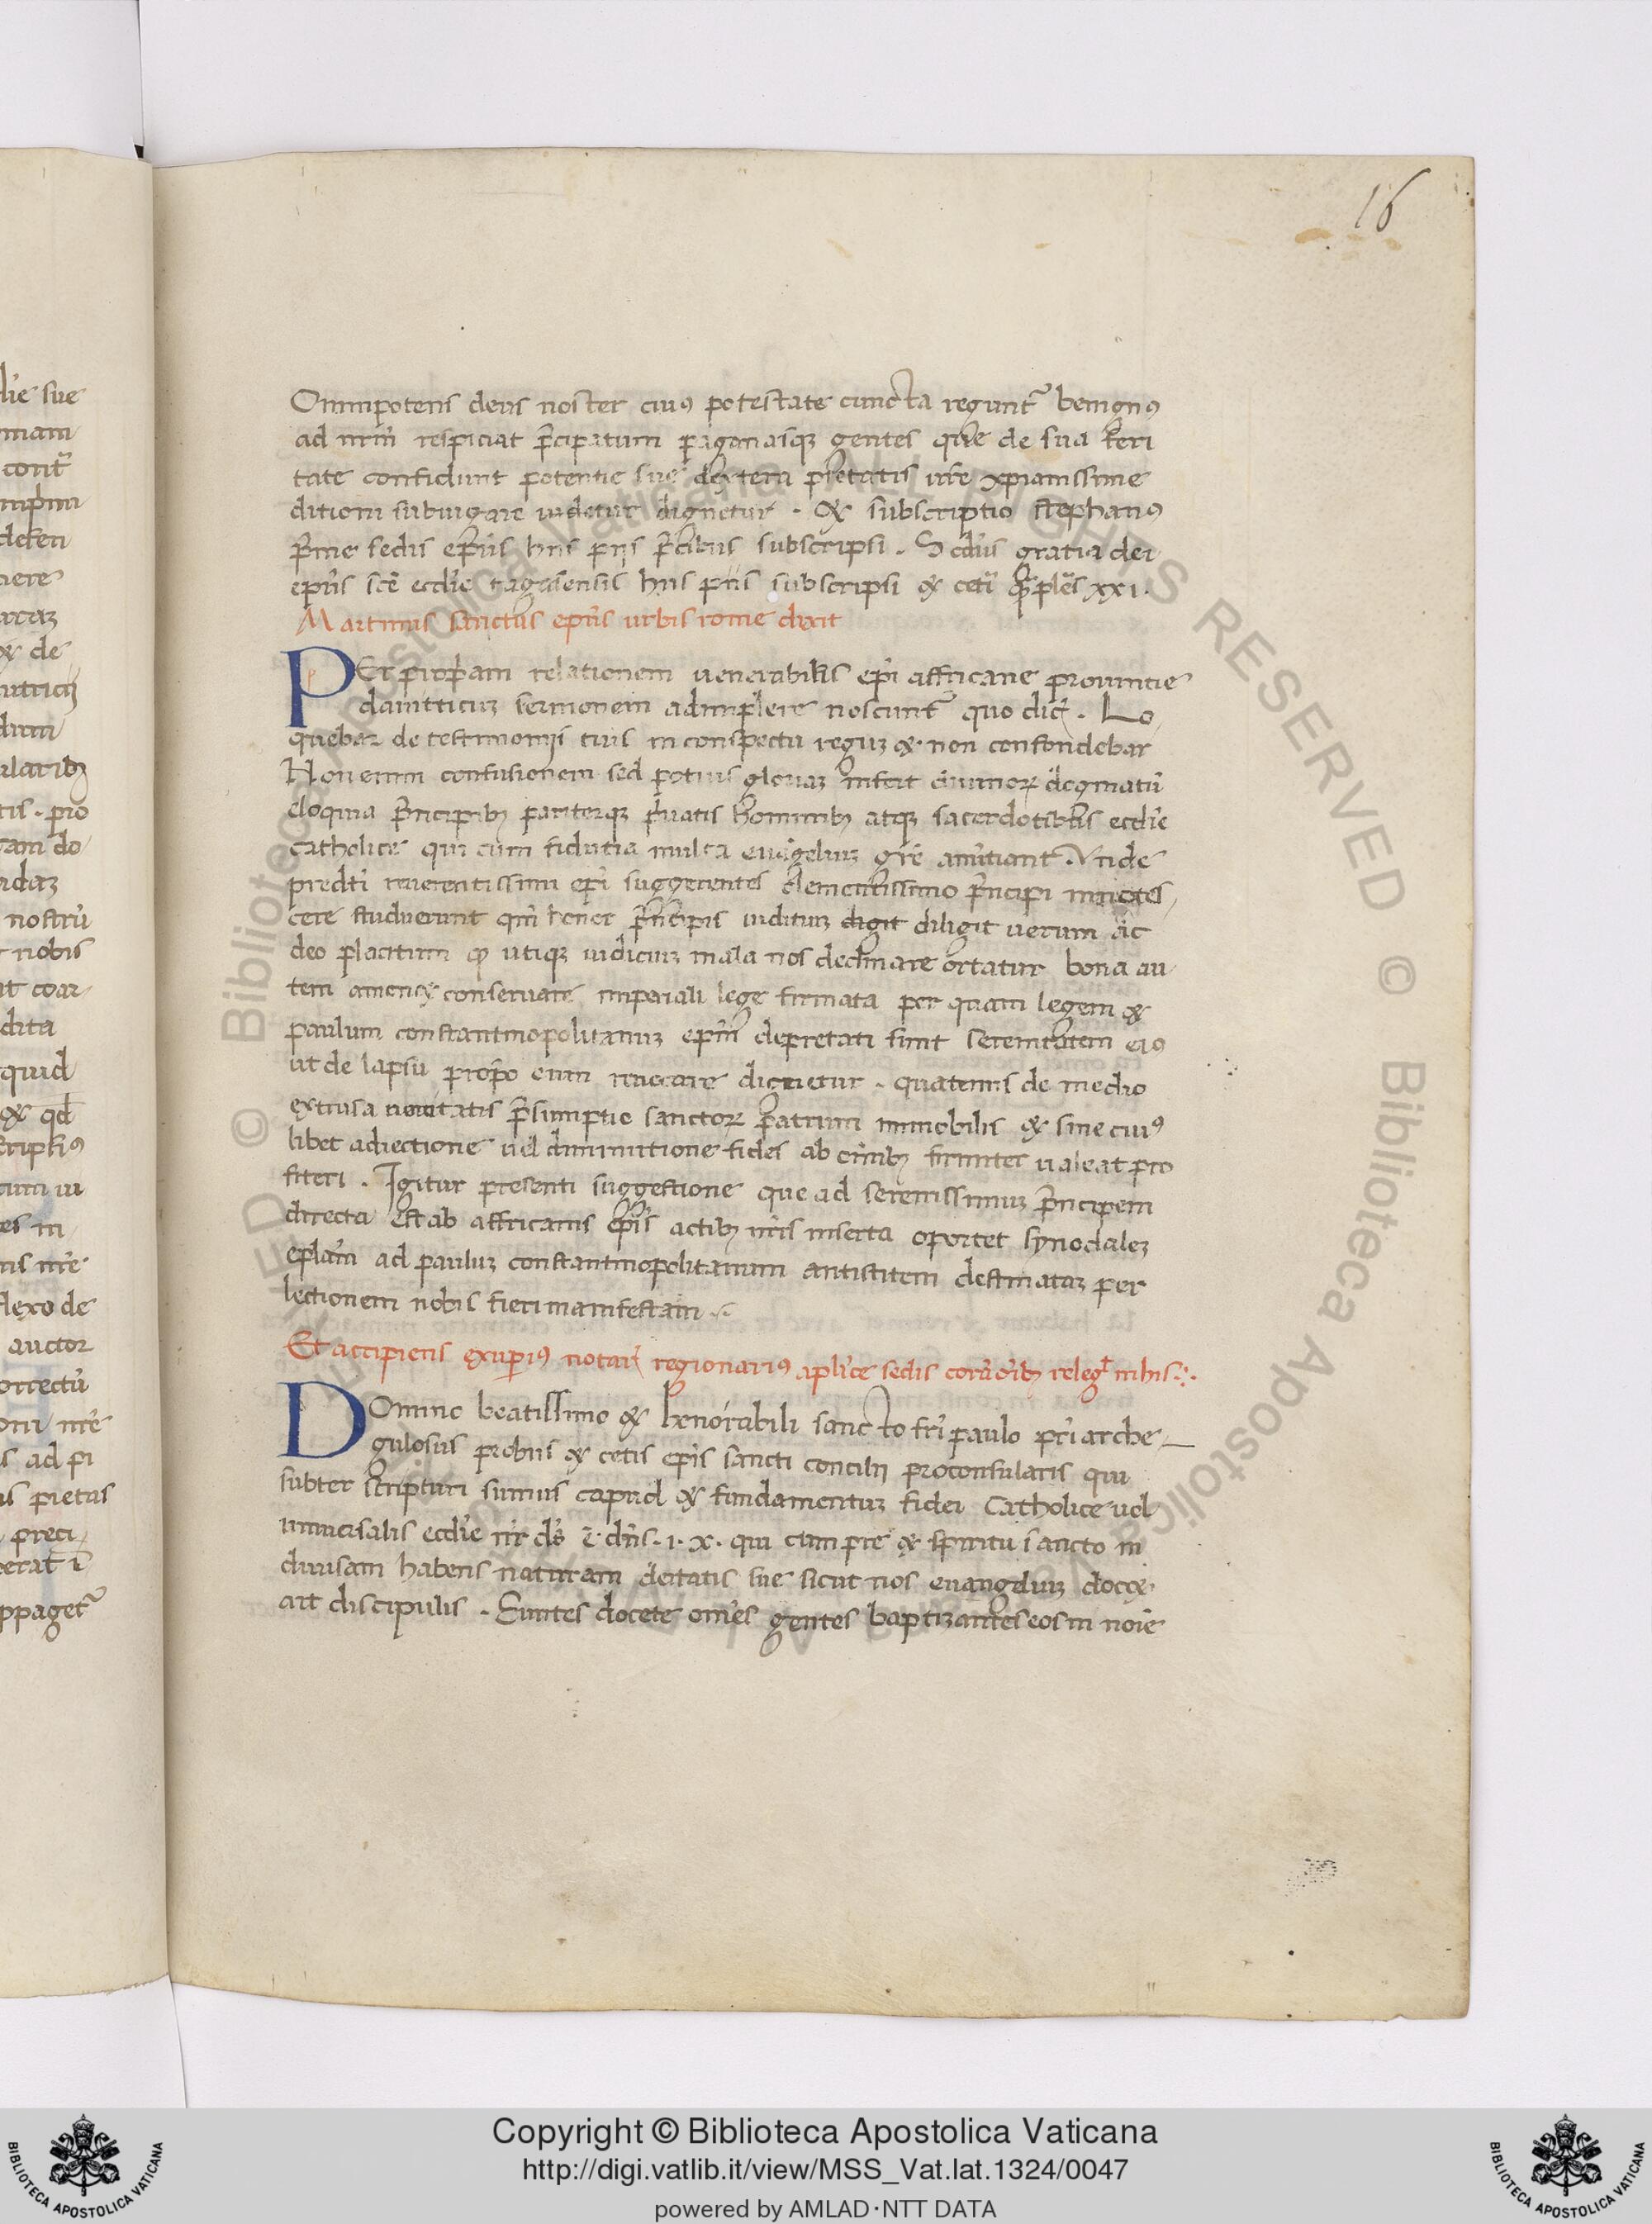 16
Omnipotens deus noster cuius potestate cuncta regunt᷑ benignus
ad nrm̄ respiciat p̄cipatum paganasq; gentes que de sua feri
tate confidunt potentie sue dextera pietatis ure xp̄ianissime
ditioni subiugare iudetur dignetur . & subscriptio stephanus
p̄me sedis ep̄us hus p̄cibus subscripsi .
ep̄us scē ecclie tagasensis hus subscripsi & xxi.
Martinus sanctus ep̄us urbis rome dixit
PEr relationem uenerabilis ep̄i affricane prouintie
dauitticuȝ sermonem adimplere noscunt᷑ quo dic̄ . Lo
quebar de testimoniis tuis in conspectu reguȝ & non confondebar
Non enim confusionem sed potius gloriaȝ infert diuinoꝝ dogmatū
eloquia p̄ncipibȝ pariterq; p̄uatis hominibȝ atq; sacerdotibus ecclie
catholice qui cum fidutia multa euāgeliuȝ grē anūtiant . Vnde
predc̄ti reuerentissimi ep̄i suggerentes clementissimo p̄ncipi innotes
cere studuerunt qm̄ honor p̄ncipis iuditiuȝ digit diligit uerum ac
deo placitum utiq; iudiciuȝ mala nos declinare ortatur bona au
tem conseruare imperiali lege firmata per quam legem &
paulum constantinopolitanuȝ ep̄m̄ depretati sunt serenitatem eius
ut de lapsu propo eum reuocare dignetur . quatenus de medio
extrusa nouitatis p̄sumptio sanctoꝝ patrum immobilis & sine cuius
libet adiectione uel diminutione fides ab oīnibȝ firmiter ualeat pro
fiteri . Igitur presenti suggestione que ad serenissimuȝ p̄ncipem
directa est ab affricanis ep̄is actibȝ nr̄is inserta oportet synodaleȝ
eplam̄ ad pauluȝ constantinopolitanum antistitem destinataȝ per
lectionem nobis fieri manifestam .
Et accipiens exuperius notari regionarius aplice sedis relegᵗ in his
DOmino beatissimo & honorabili sancto fri paulo pr̄i arche
gulosus probus & cetis ep̄is sancti concilii proconsularis qui
subter scripturi sumus caput & fundamentuȝ fidei Catholice uel
uniuersalis ecclie nr̄ ds̄ ē dn̄s . i . x . qui cum pre & spiritu sancto in
diuisam habens naturam deitatis sue sicut nos euangeliuȝ doce
ait discipulis . Euntes docete omēs gentes baptizantes eos in noīe
Copyright © Biblioteca Apostolica Vaticana
http://digi.vatlib.it/view/MSS_Vat.lat.1324/0047
powered by AMLAD·NTT DATA